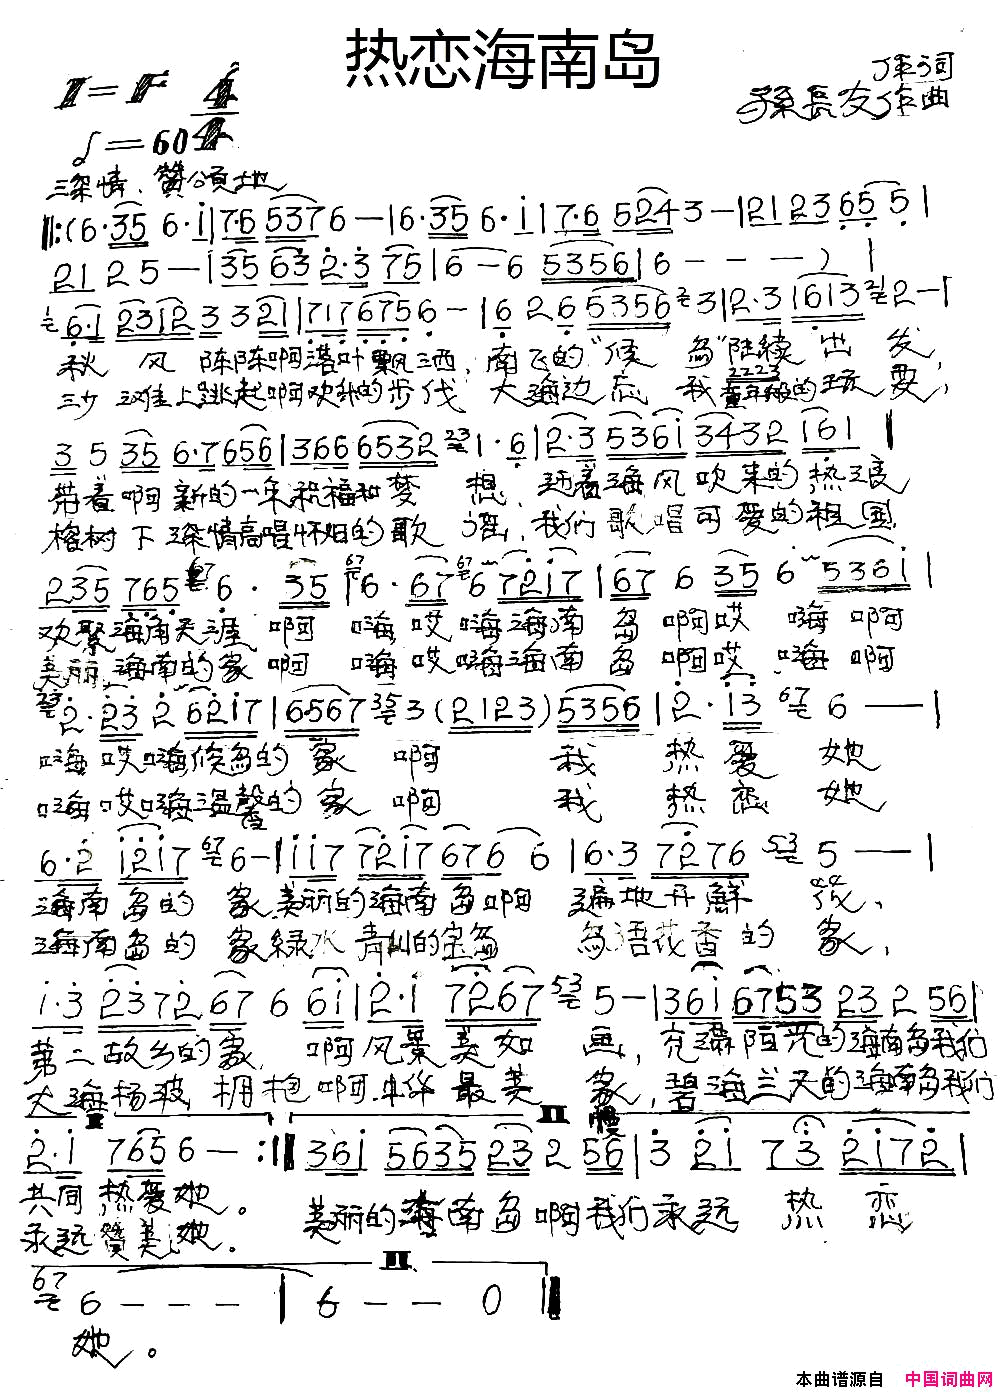 热恋海南岛
作词
1=F 4/4
孫長友作曲
♩=60
深情、贊頌地
‖:(6·35 6·i|7·6 5376—|6·35 6·i|7·6 524 3—|21 23 65 5|
21 2 5—|35 63 2·3 75|6—6 5356|6———)|
6·1 2312 3 3 21|717 6756—|6 2 6 5356 3|2·3 1613 2—|
秋风陈陈啊落叶飘洒,南飞的"候鸟"陆续出发,
沙滩上跳起啊欢乐的步伐 大海边忘我童年般的玩耍,
3 5 35 6·7 656|366 6532 1·6|2·3 5361 3432 161|
带着啊新的一年祝福和梦想,迎着海风吹来的热浪
榕树下深情高唱怀旧的歌谣,我们歌唱可爱的祖国
235 765 6·35|6·67 6 7217|67 6 35 6 5361|
欢聚海南天涯啊 嗨哎嗨海南岛啊哎嗨啊
美丽海南的家啊 嗨哎嗨海南岛啊哎嗨啊
2·23 2 6217|6·567 3(2123)5356|2·13 6——|
嗨哎嗨候鸟的家啊 我热爱她
嗨哎嗨温馨的家啊 我热恋她
6·2 1217 6—|117 7217 676 6|6·3 7276 5——|
海南岛的家美丽的海南岛啊遍地开鮮花、
海南岛的家緑水青山的宝岛 鸟语花香的家,
1·3 2372 67 6 61|2·1 7267 5—|361 6753 23 2 56|
第二故乡的家,啊风景美如画,充满阳光的海南岛我们
大海杨波,拥抱啊中华最美家,碧海兰天的海南岛我们
2·1 765 6—:‖361 5635 23 2 56|3 21 7 3 2172|
共同热爱她。
美丽的海南岛啊我们永远热恋
永远贊美她。
6———|6——0‖
她。
本曲谱源自 中国词曲网